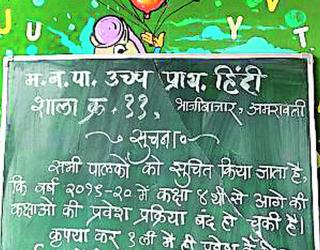 J U Y V T
म.न.पा. उच्च प्राथ. हिंदी
शाला क्र. ११, भाजीबाजार, अमरावती
सूचना
सभी पालकों को सुचित किया जाता है,
कि वर्ष २०१९-२० में कक्षा ४थी से आगे की
कक्षाओ की प्रवेश प्रक्रिया बंद हो चुकी है।
कृपया कर १ली में ही